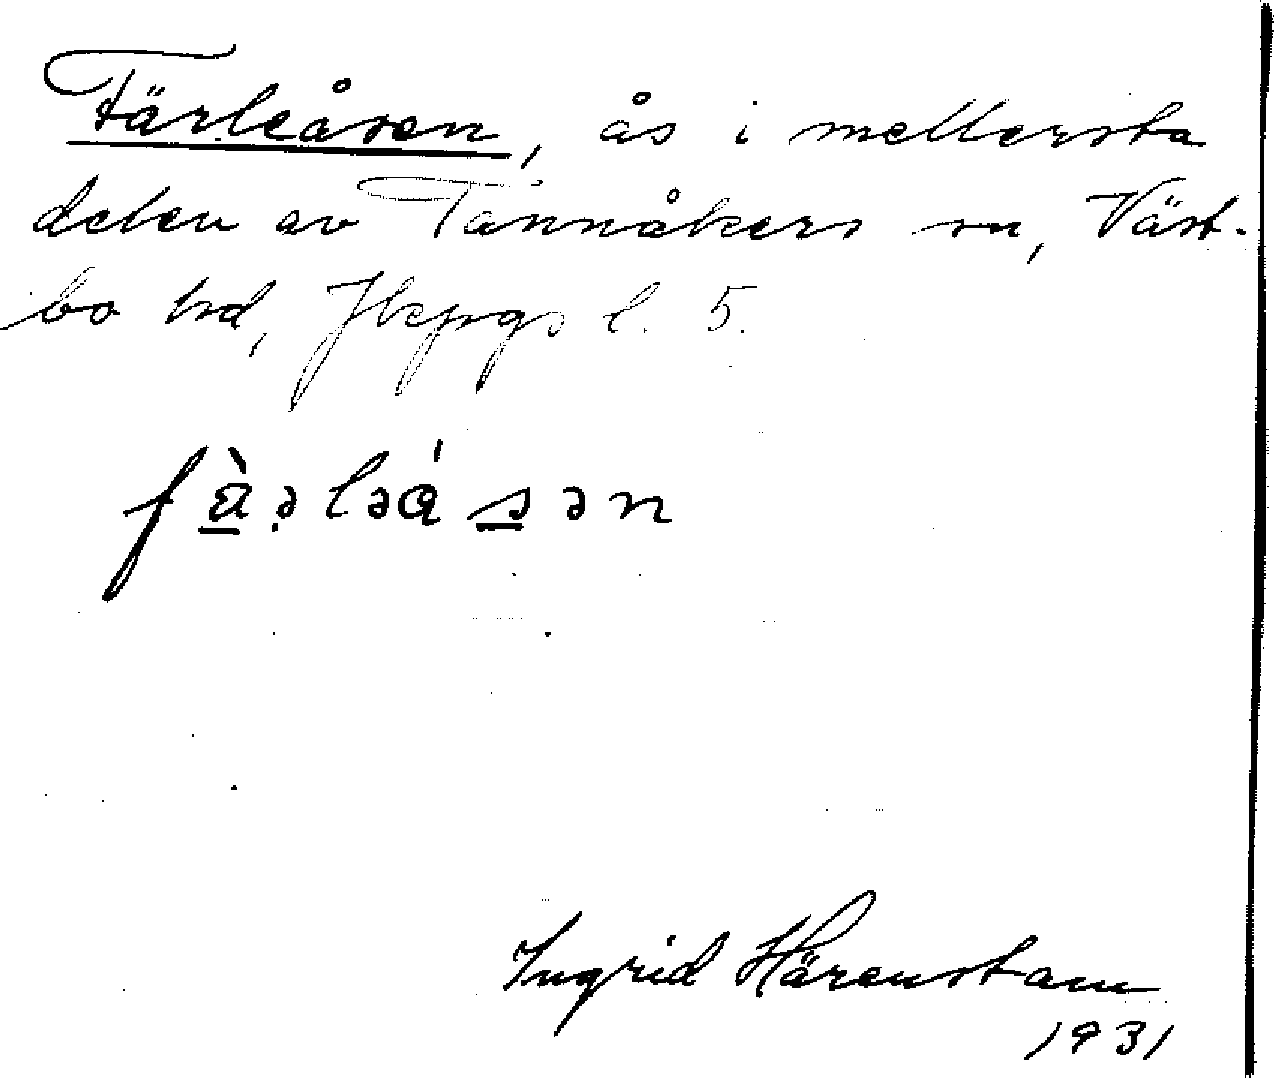 Färleåsen, ås i mellersta
delen av Tannåkers sn, Väst-
bo hd, Jkpgs l. 5.
Ingrid Härenstam
1931